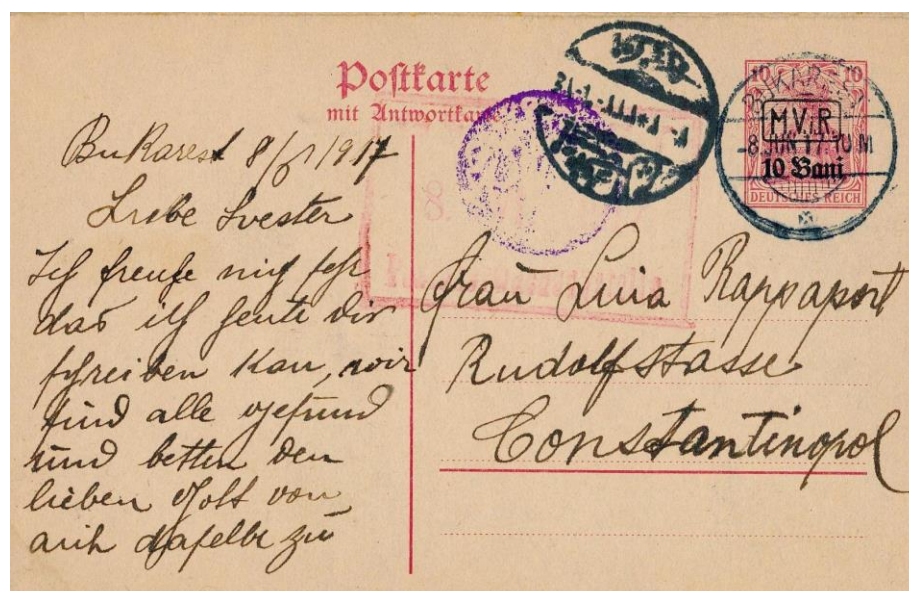 Postkarte
mit Antwortkarte
10 10
BUKAREST
M.V.i.R.
-8.JUN 17.-10 M
10 Bani
DEUTSCHES REICH
8.
Bukarest 8/6 1917
Liebe Svester
Ich freue mich sehr
das ich heute dir
schreiben kan, wir
sind alle gesund
und betten den
lieben Gott von
auch dasselbe zu
Frau Lina Rappaport
Rudolfstasse
Constantinopol